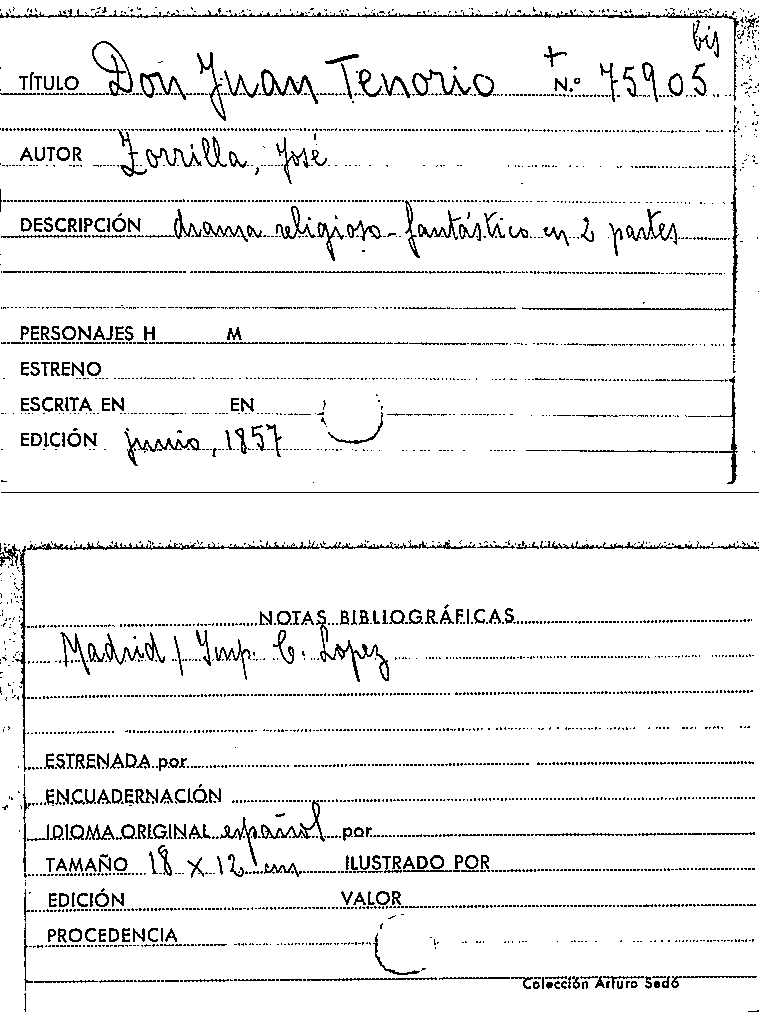 bis
TÍTULO Don Juan Tenorio + N.º 75905
AUTOR Zorrilla, José
DESCRIPCIÓN drama religioso-fantástico en 2 partes
PERSONAJES H M
ESTRENO
ESCRITA EN EN
EDICIÓN junio, 1857
NOTAS BIBLIOGRÁFICAS
Madrid / Imp. C. Lopez
ESTRENADA por
ENCUADERNACIÓN
IDIOMA ORIGINAL español por
TAMAÑO 18 x 12 cm ILUSTRADO POR
EDICIÓN VALOR
PROCEDENCIA
Colección Arturo Sedó